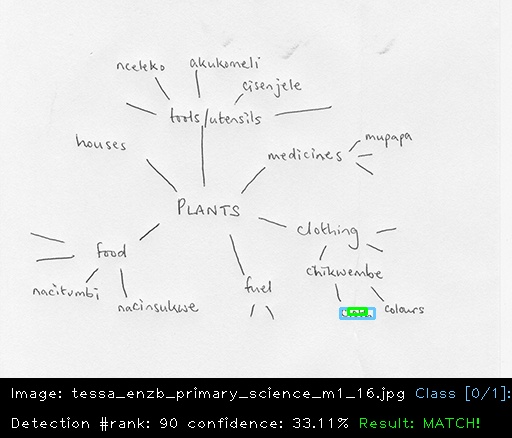 nceleko
akukomeli
cisenjele
tools/utensils
houses
medicines
mupapa
PLANTS
clothing
food
chikwembe
fuel
nacitumbi
nacinsukwe
colours
Image: tessa_enzb_primary_science_m1_16.jpg Class [0/1]:
Detection #rank: 90 confidence: 33.11% Result: MATCH!